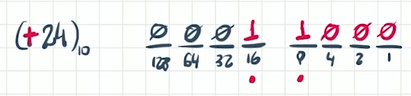 (+24)₁₀ 0 0 0 1 1 0 0 0
128 64 32 16 8 4 2 1